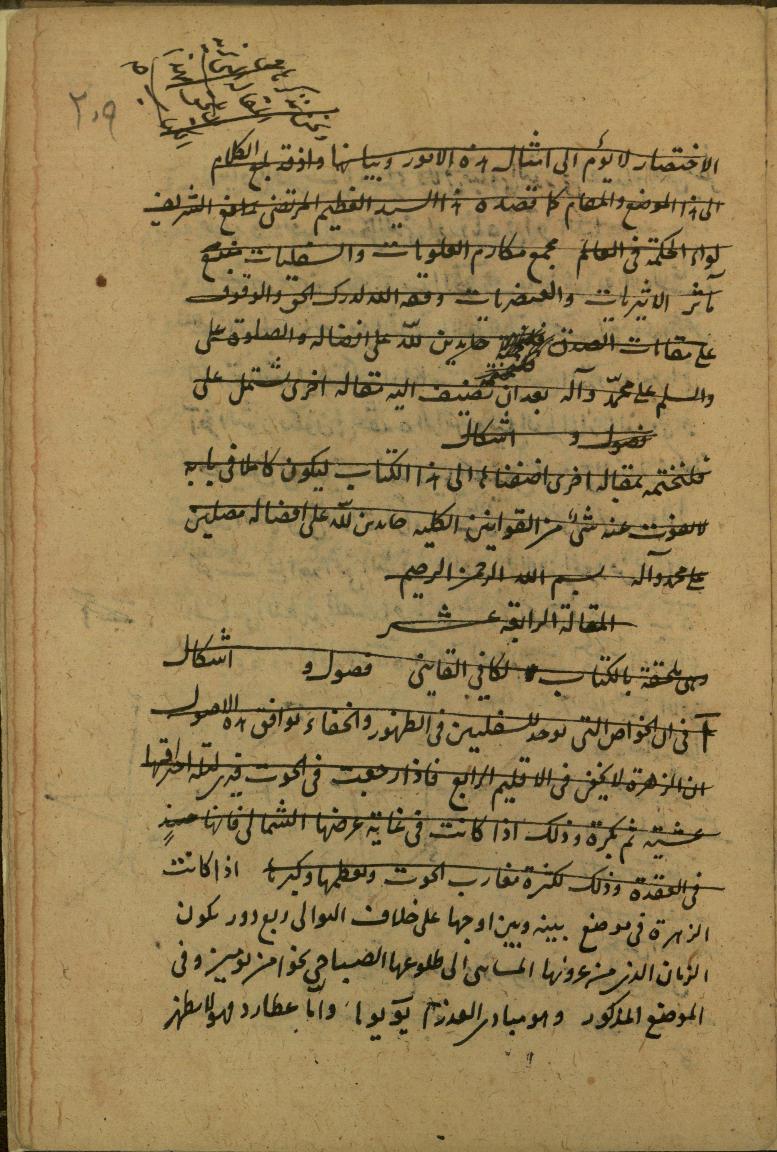 ٢٠٩
الاختصار لا يؤم الى امثال هذه الامور وبيانها واذ قد بلغ الكلام
الى هذا الموضع والمقام كما قصده هذا السيد العظيم المرتضى رافع الشريف
لواء الحكمة فى العالم مجمع مكارم العلويات والسفليات منبع
مآثر الاثيريات والعنصريات وفقه الله لدرك الحق والوقوف
على مقامات الصدق حامدين لله على افضاله والصلوة على
والسلم على محمد وآله بعد ان تضيف اليه مقالة اخرى تشتمل على
فصول و اشكال
فلنختمه بمقالة اخرى اضفناها الى هذا الكتاب ليكون كاملا فى بابه
لا يفوت عنه شئ من القوانين الكلية حامدين لله على افضاله مصلين
على محمد وآله بسم الله الرحمن الرحيم
المقالة الرابعة عشر
وهى ملحقة بالكتاب لكافى القاينى فصول و اشكال
آ فى ان الخواص التى توجد للسفليين فى الظهور والخفاء توافق هذه الاصول
ان الزهرة لا يخفى فى الاقليم الرابع فاذا رجعت فى الحوت فيرى ليلة احتراقها
عشية ثم بكرة وذلك اذا كانت فى غاية عرضها الشمالى فانها حينئذ
فى العقدة وذلك لكثرة مغارب الحوت ولعظمها وكبرها اذا كانت
الزهرة فى موضع بينه وبين اوجها على خلاف التوالى ربع دور يكون
الزمان الذى من غروبها المسائى الى طلوعها الصباحى نحوا من يومين وفى
الموضع المذكور وهو مبادى العذرا يو يوما واما عطارد فهو لا يظهر